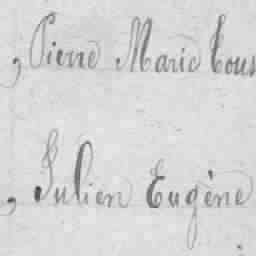 , Pierre Marie Tous
, Julien Eugène